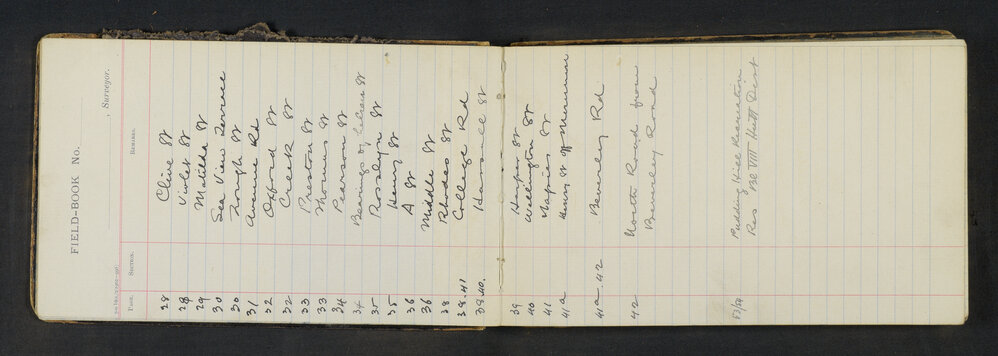 FIELD-BOOK No.
, Surveyor.
Page. Section. Remarks.
28 Clive St
28 Violet St
29 Matilda St
30 Sea View Terrace
30 Trough St
31 Avenue Rd
32 Oxford St
32 Creek St
33 Preston St
33 Thomas St
34 Pearson St
34 Bearings of Nelson St
35 Rosslyn St
35 Henry St
36 A St
36 Middle St
38 Rhodes St
38.41 College Rd
39.40. Harsance St
39 Harper St
40 Wellington St
41 Napier St
41a Henry St off
41a.42 Beverley Rd
42 North Road from
Beverley Road
53/54 Pudding Hill Plantation
Res Bl VIII Hutt Dist